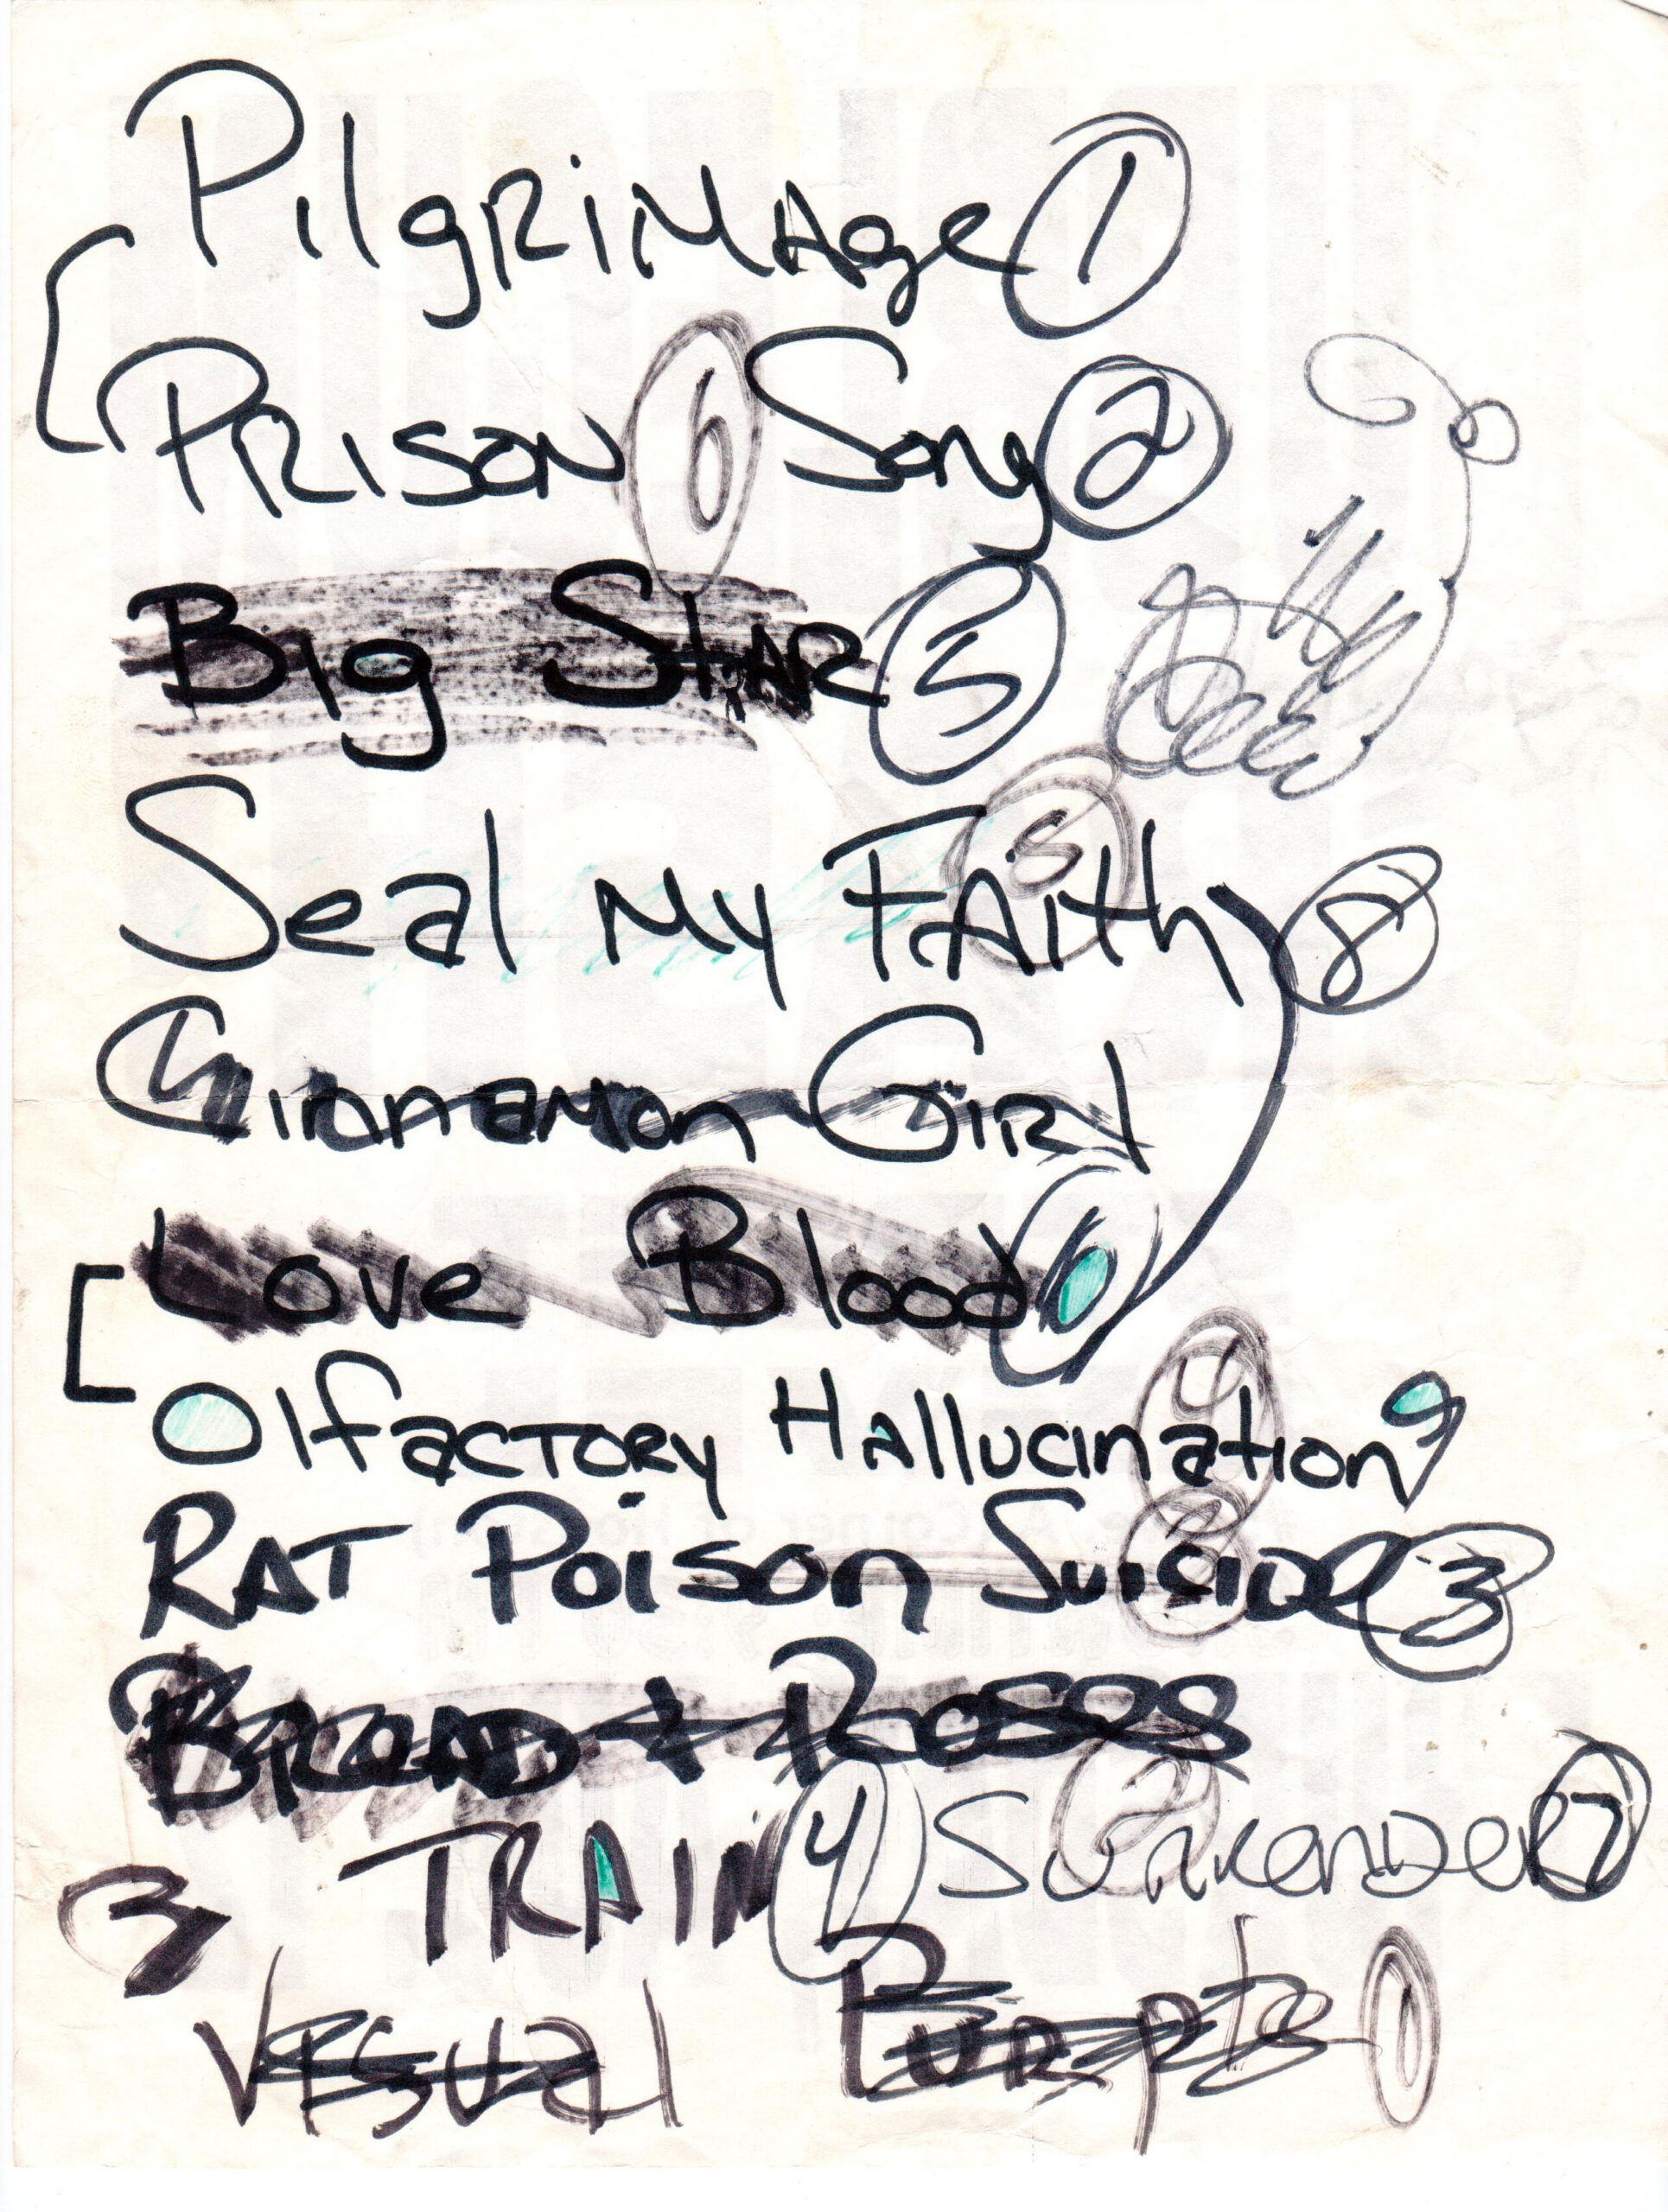 PilgRiMAge 1
PRISON 6 Song 2
Big StAR 5
Seal My FAith 5 8
Cinnamon GiRl
Love Blood 6
OlfacTORy Hallucination 4 9
RAT Poison SuiciDe 3 3
BReAD & Roses
TRAIN 4 SuRRenDeR 2 7
3
Visual PuRple 1